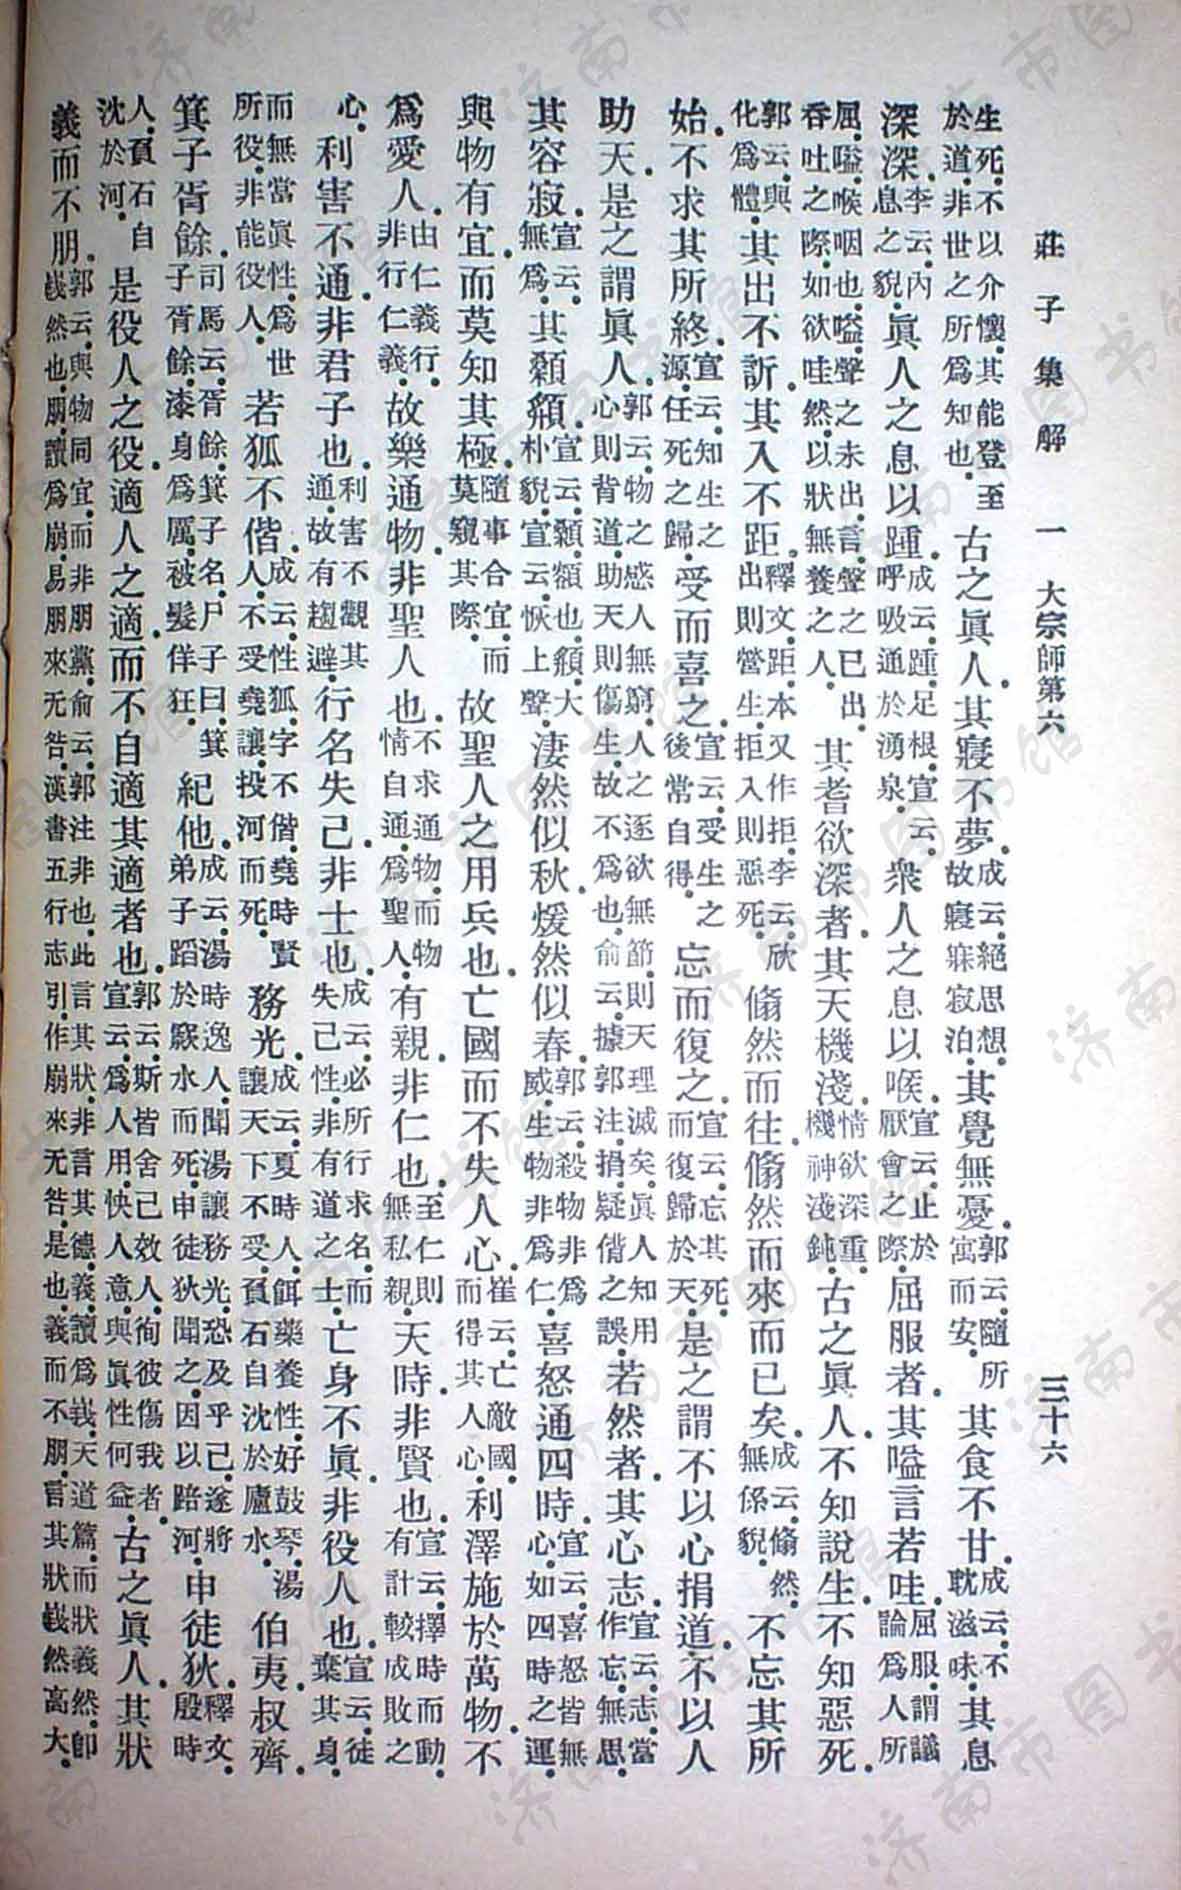 莊子集解 一 大宗師第六 三十六
生死不以介懷.其能登至於道.非世之所爲知也.古之眞人.其寢不夢.成云.絕思想.故寢寐寂泊.其覺無憂.郭云.隨所寓而安.其食不甘.成云.不耽滋味.其息
深深.李云.內息之貌.眞人之息以踵.成云.踵.足根.宣云.呼吸通於湧泉.衆人之息以喉.宣云.止於厭會之際.屈服者.其嗌言若哇.屈服.謂議論爲人所
屈.嗌.喉咽也.嗌.聲之未出.言.聲之已出.吞吐之際.如欲哇然.以狀無養之人.其耆欲深者.其天機淺.情欲深重.機神淺鈍.古之眞人.不知說生.不知惡死.
郭云.與化爲體.其出不訢.其入不距.釋文.距.本又作拒.李云.欣出則營生.拒入則惡死.翛然而往.翛然而來而已矣.成云.翛然.無係貌.不忘其所
始.不求其所終.宣云.知生之源.任死之歸.受而喜之.宣云.受生之後.常自得.忘而復之.宣云.忘其死.而復歸於天.是之謂不以心捐道.不以人
助天.是之謂眞人.郭云.物之感人無窮.人之逐欲無節.則天理滅矣.眞人知用心則背道.助天則傷生.故不爲也.俞云.據郭注.捐疑偝之誤.若然者.其心志.宣云.志當作忘.無思.
其容寂.宣云.無爲.其顙頯.宣云.顙.額也.頯.大朴貌.宣云.恢上聲.淒然似秋.煖然似春.郭云.殺物非爲威.生物非爲仁.喜怒通四時.宣云.喜怒皆無心.如四時之運.
與物有宜.而莫知其極.隨事合宜.而莫窺其際.故聖人之用兵也.亡國而不失人心.崔云.亡敵國而得其人心.利澤施於萬物.不
爲愛人.由仁義行.非行仁義.故樂通物.非聖人也.不求通物.而物情自通.爲聖人.有親.非仁也.至仁則無私親.天時.非賢也.宣云.擇時而動.有計較成敗之
心.利害不通.非君子也.利害不觀其通.故有趨避.行名失己.非士也.成云.必所行求名而失己性.非有道之士.亡身不眞.非役人也.宣云.徒棄其身
而無當眞性.爲世所役.非能役人.若狐不偕.成云.姓狐.字不偕.堯時賢人.不受堯讓.投河而死.務光.成云.夏時人.餌藥養性.好鼓琴.湯讓天下不受.負石自沈於廬水.伯夷.叔齊.
箕子胥餘.司馬云.胥餘.箕子名.尸子曰.箕子胥餘.漆身爲厲.被髮佯狂.紀他.成云.湯時逸人.聞湯讓務光.恐及乎己.遂將弟子蹈於窾水而死.申徒狄聞之.因以踣河.申徒狄.釋文.殷時
人.負石自沈於河.是役人之役.適人之適.而不自適其適者也.郭云.斯皆舍己效人.徇彼傷我者.宣云.爲人用.快人意.與眞性何益.古之眞人.其狀
義而不朋.郭云.與物同宜.而非朋黨.俞云.郭注非也.此言其狀.非言其德.義讀爲峩.天道篇.而狀義然.卽峩然也.朋讀爲崩.易朋來无咎.漢書五行志引作崩來无咎.是也.義而不朋.言其狀峩然高大.